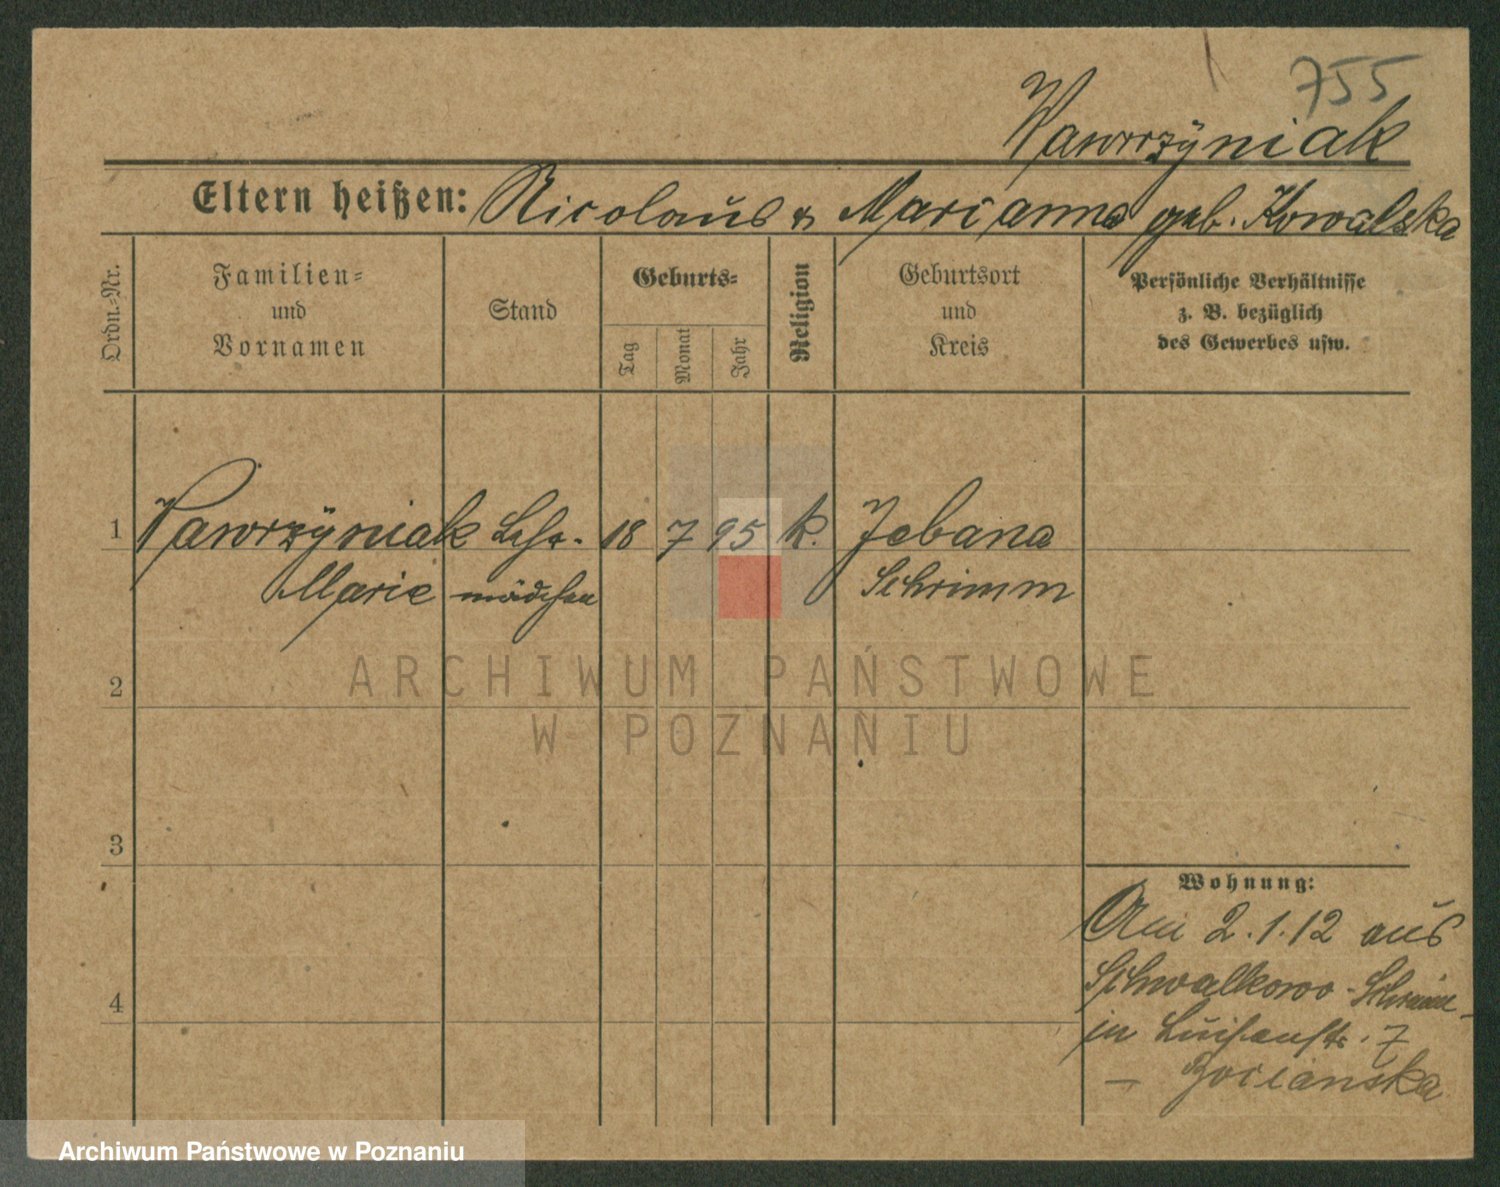 755
Wawrzÿniak
Eltern heißen: Nicolaus & Marianna geb. Kowalska
Ordn.-Nr.
Familien-
und
Vornamen
Stand
Geburts-
Tag
Monat
Jahr
Religion
Geburtsort
und
Kreis
Persönliche Verhältnisse
z. B. bezüglich
des Gewerbes usw.
1 Wawrzÿniak Lehr- 18 7 95 k. Jebana
Marie mädchen Schrimm
2
ARCHIWUM PAŃSTWOWE
W POZNANIU
3
Wohnung:
Am 2.1.12 aus
Schwalkowo - Schrimm -
4
in Luisenstr. 7
–
Archiwum Państwowe w Poznaniu